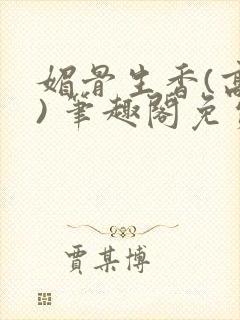 媚骨生香(高
)笔趣阁免费
贾某博